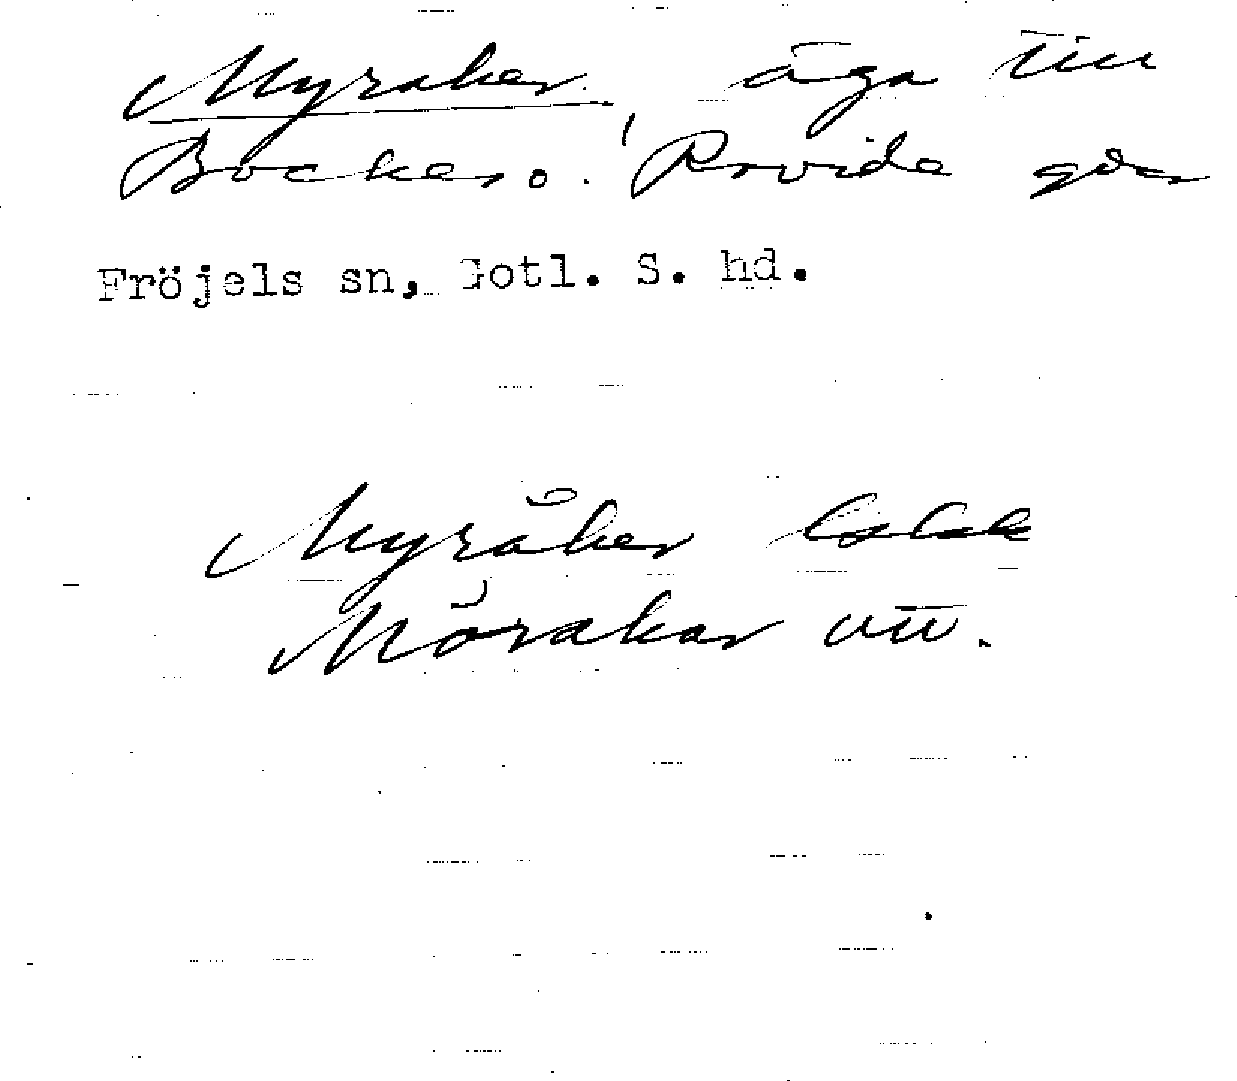 Myråker, äga till
Bockes o. Rovide går
Fröjels sn, Gotl. S. hd.
Myråker
Mörakar utt.